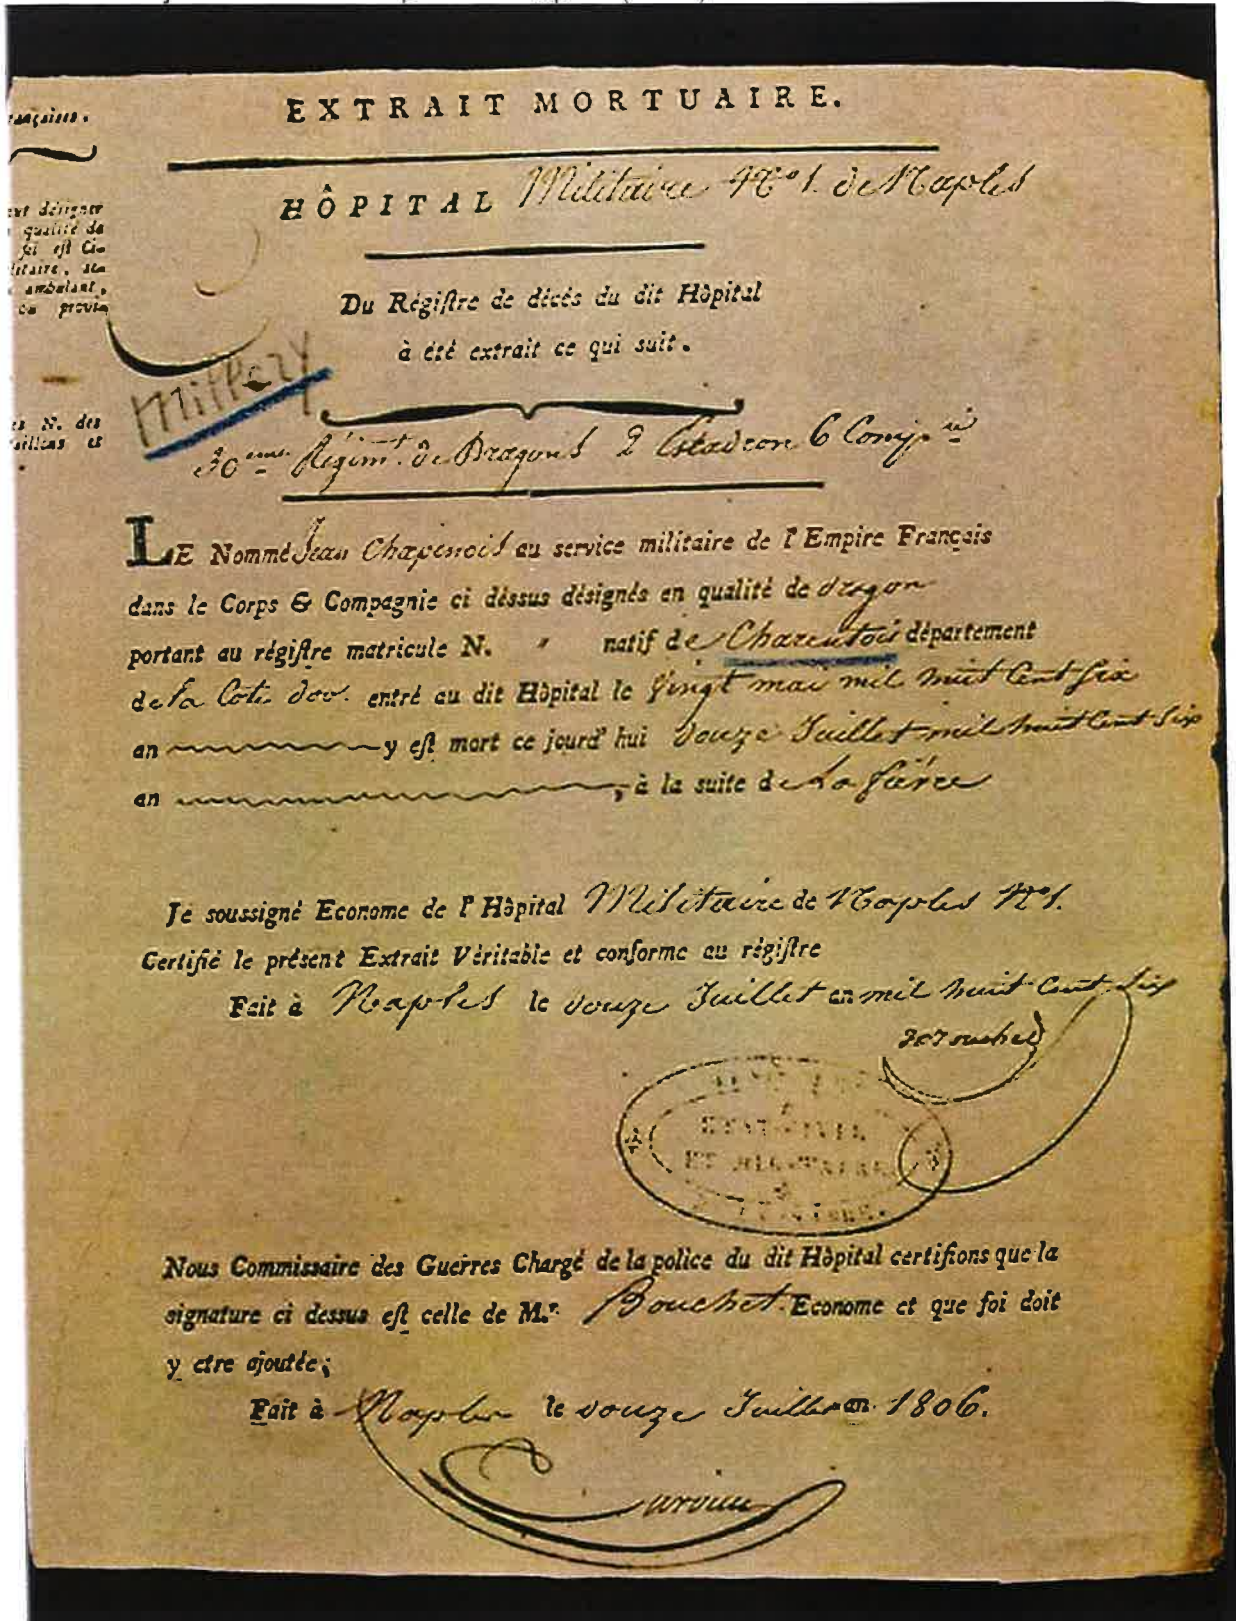 EXTRAIT MORTUAIRE.
ançaises.
HÔPITAL Militaire No 1. de Naples
eut désigner
qualité de
si est Ci-
litaire, sé
ambulant,
ou provi
Du Régistre de décés du dit Hôpital
à été extrait ce qui suit.
Millery
es N. des
aillons et
30eme Régimt. de Dragons 2 Escadron 6 Compie
LE Nommé Jean Chapinois au service militaire de l'Empire Français
dans le Corps & Compagnie ci déssus désignés en qualité de dragon
portant au régistre matricule N. " natif de Charentois département
de La Cote dor. entré au dit Hôpital le Vingt mai mil huit Cent Six
an y est mort ce jourd'hui douze Juillet mil huit Cent Six
an , à la suite de La fièvre
Je soussigné Econome de l'Hôpital Militaire de Naples No 1.
Certifié le présent Extrait Véritable et conforme au régistre
Fait à Naples le douze Juillet an mil huit Cent Six
ET MILITAIRE
Nous Commissaire des Guerres Chargé de la police du dit Hôpital certifions que la
signature ci dessus est celle de M.r Bouchet Econome et que foi doit
y etre ajoutée;
Fait à Naples le douze Juillet an 1806.